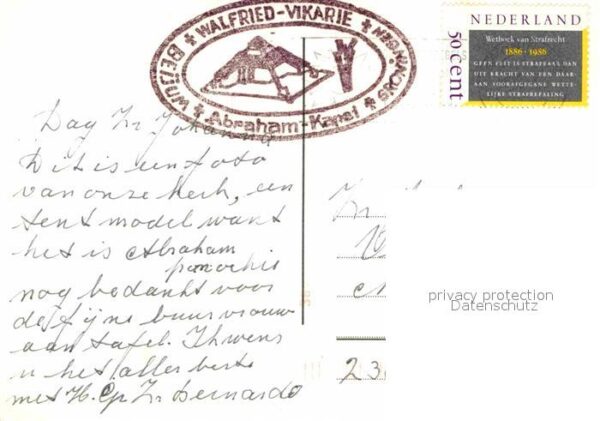 WALFRIED-VIKARIE
BEIJUM
GRONINGEN
Abraham-Kapel
NEDERLAND
50 cent
Wetboek van Strafrecht
1886 - 1986
GEEN FEIT IS STRAFBAAR DAN
UIT KRACHT VAN EEN DAAR-
AAN VOORAFGEGANE WETTE-
LIJKE STRAFBEPALING
Dag Zr Johanna
Dit is een foto
van onze kerk, een
tent model want
het is Abraham
parochie
nog bedankt voor
de fijne buurvrouw
aan tafel. Ik wens
u het allerbeste
met H. Gr Zr Bernarda
Zr
23
privacy protection
Datenschutz